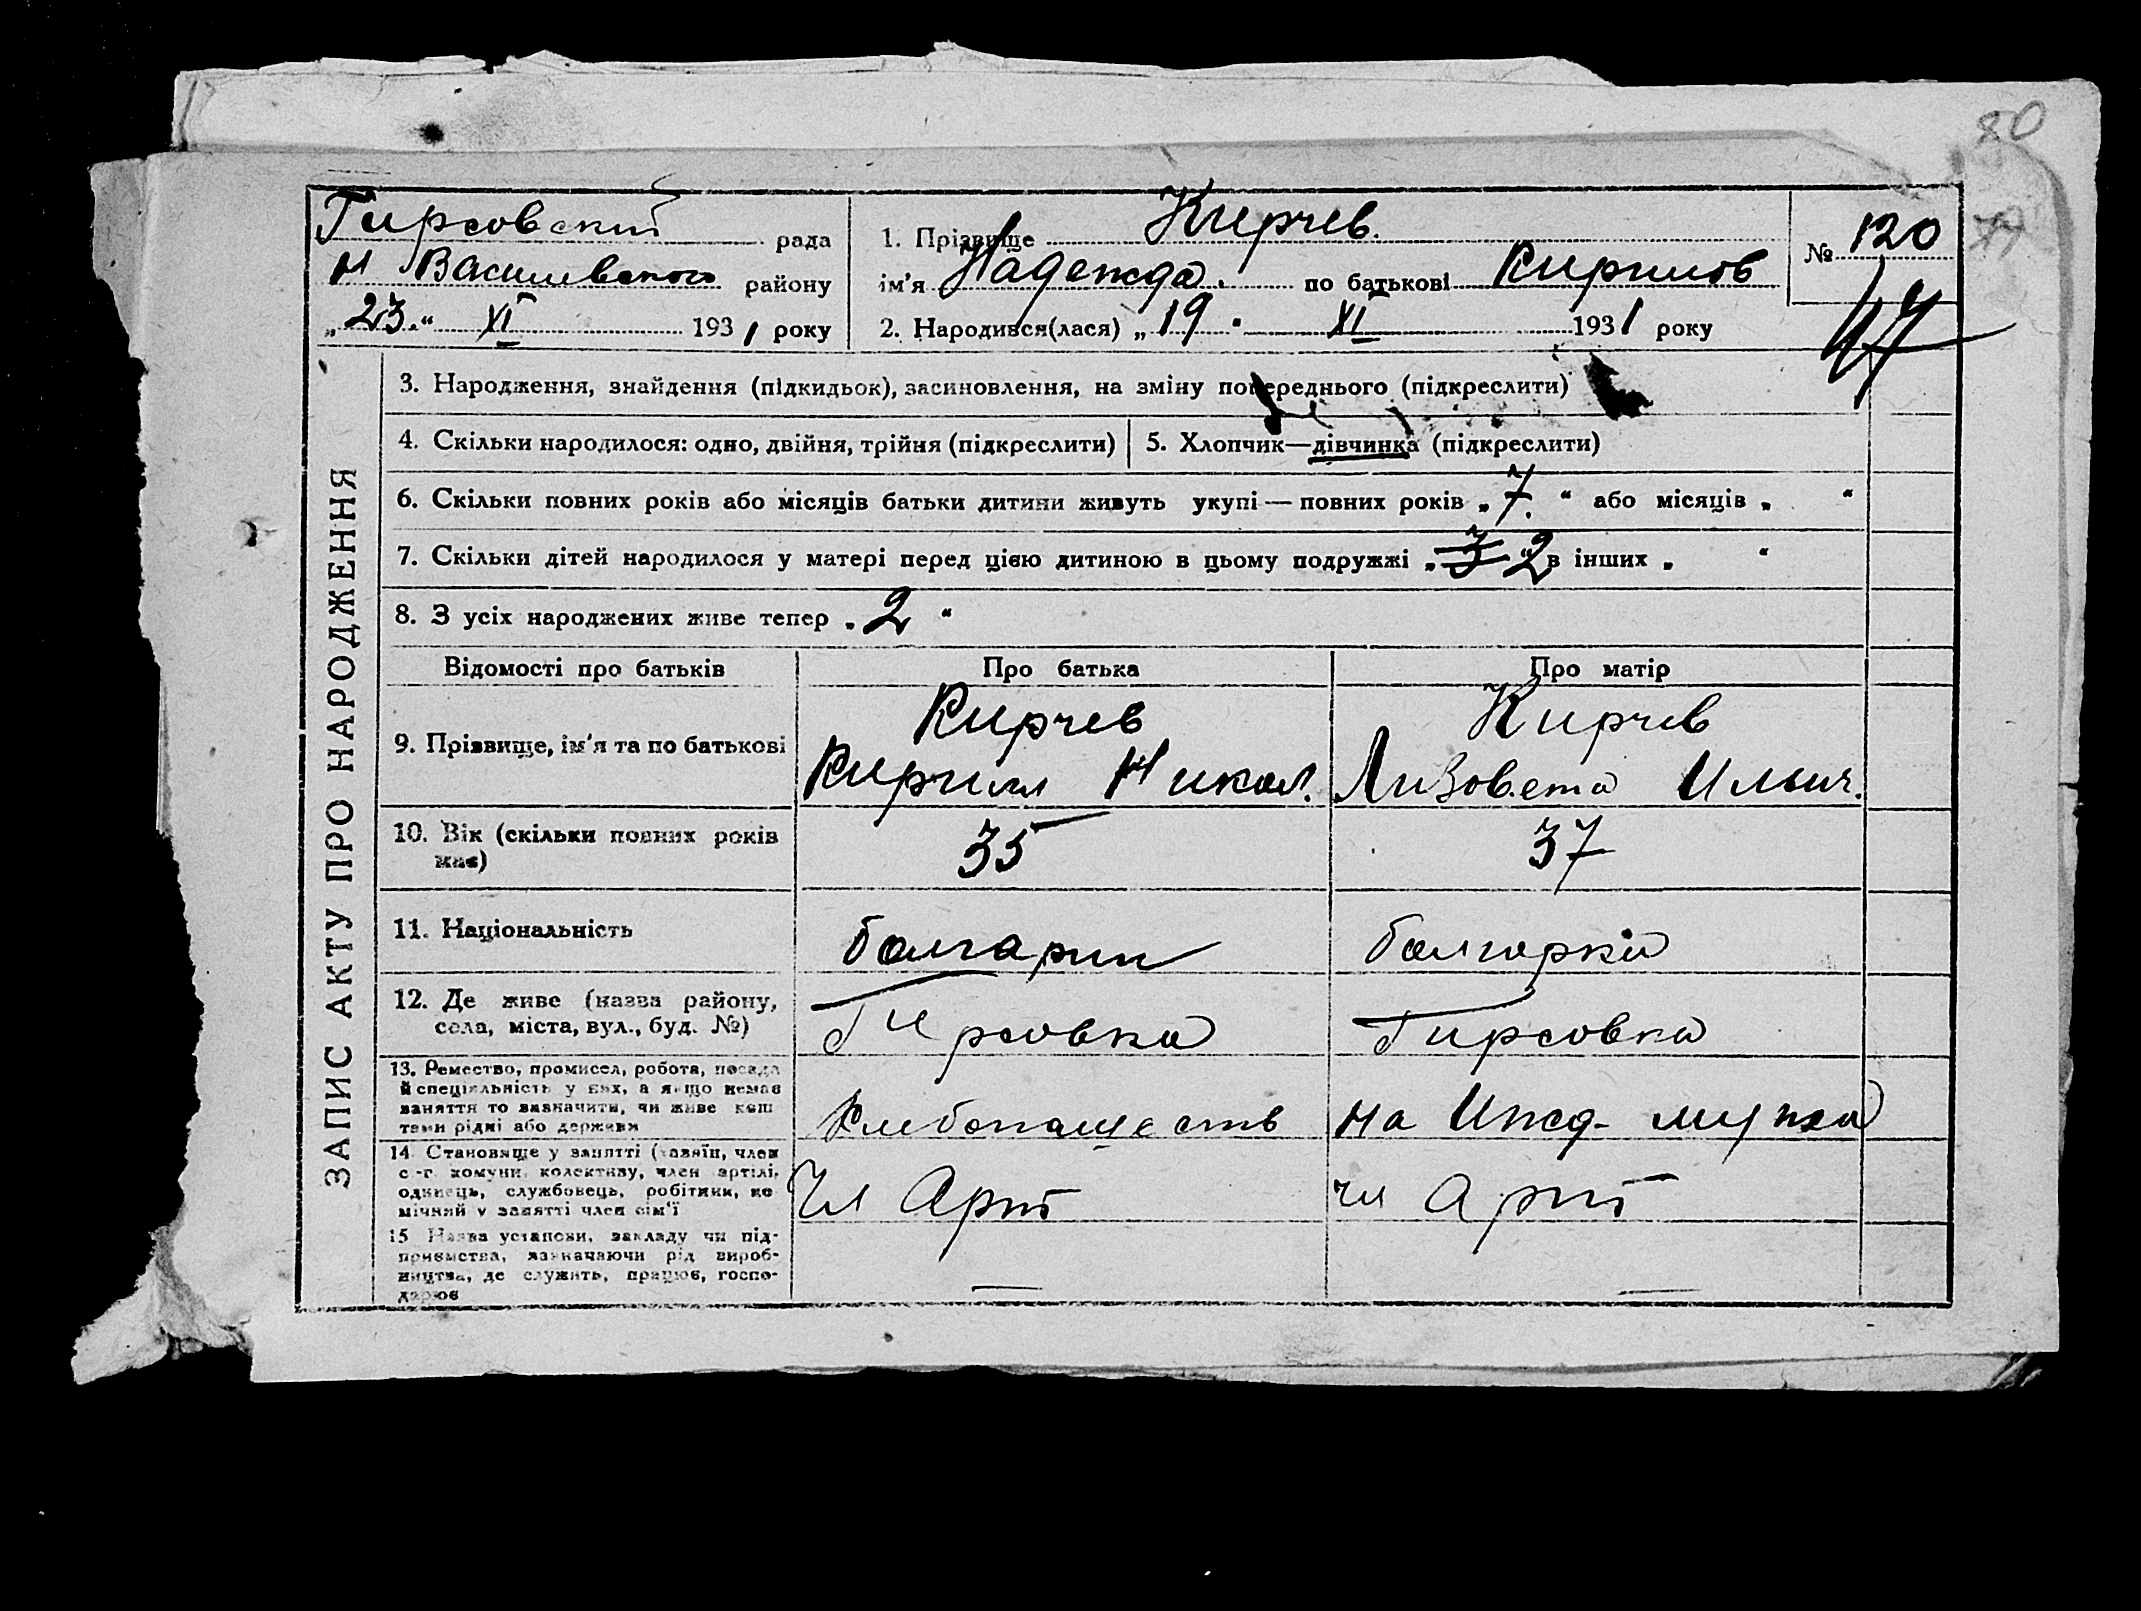 80
Гирсовский рада
Н Василевского району
„23.“ XI 1931 року
1. Прізвище Кирчев.
ім'я Надежда. по батькові Кирилов
2. Народився(лася) „19. XI 1931 року
№ 120
47
ЗАПИС АКТУ ПРО НАРОДЖЕННЯ
3. Народження, знайдення (підкидьок), засиновлення, на зміну попереднього (підкреслити)
4. Скільки народилося: одно, двійня, трійня (підкреслити)
5. Хлопчик—дівчинка (підкреслити)
6. Скільки повних років або місяців батьки дитини живуть укупі — повних років „7.“ або місяців „ “
7. Скільки дітей народилося у матері перед цією дитиною в цьому подружжі „3 2 в інших „ “
8. З усіх народжених живе тепер „2“
Відомості про батьків
Про батька
Про матір
9. Прізвище, ім'я та по батькові
Кирчев
Кирилл Никол.
Кирчев
Лизовета Ильич.
10. Вік (скільки повних років
має)
35
37
11. Національність
болгарин
болгарка
12. Де живе (назва району,
села, міста, вул., буд. №)
Гирсовка
Гирсовка
13. Ремество, промисел, робота, посада
й спеціяльність у них, а якщо немає
заняття то зазначити, чи живе кош
тами рідні або держави
Хлебопашеств
На Ижд. мужа
14. Становище у занятті (хазяїн, член
с.-г. комуни, колективу, член артілі,
одинець, службовець, робітник, по
мічний у занятті член сім'ї
Чл Арт
чл Арт
15 Назва установи, закладу чи під-
приємства, зазначаючи рід вироб-
ництва, де служить, працює, госпо-
дарює
—
—